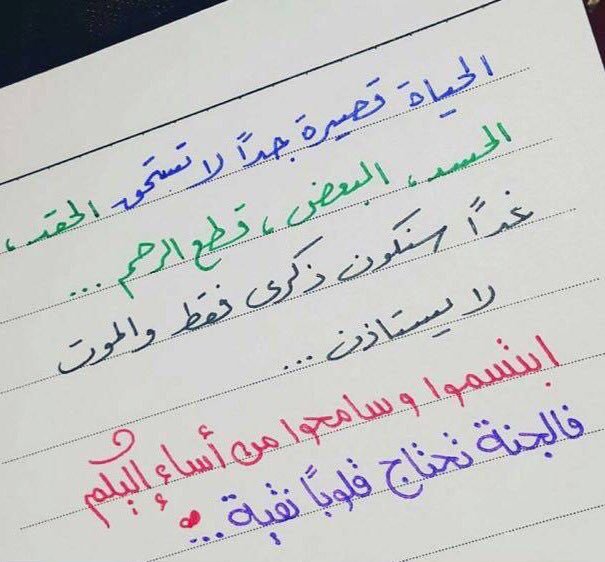 الحياة قصيرة جداً لا تستحق الحقد،
الحسد، البعض، قطع الرحم ...
غداً سنكون ذكرى فقط والموت
لا يستاذن ...
ابتسموا وسامحوا من أساء إليكم
فالجنة تحتاج قلوباً نقية ...